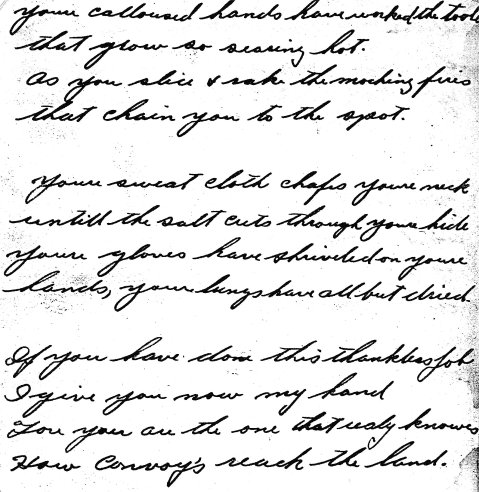 youre calloused hands have worked the tools
that grow so searing hot.
As you slice & rake the mocking fires
that chain you to the spot.
Youre sweat cloth chafes youre neck
untill the salt cuts through youre hide
youre gloves have shriveled on youre
hands, youre lungs have all but dried.
If you have done this thankless job
I give you now my hand
For you are the one that realy knowes
How Convoy's reach the land.